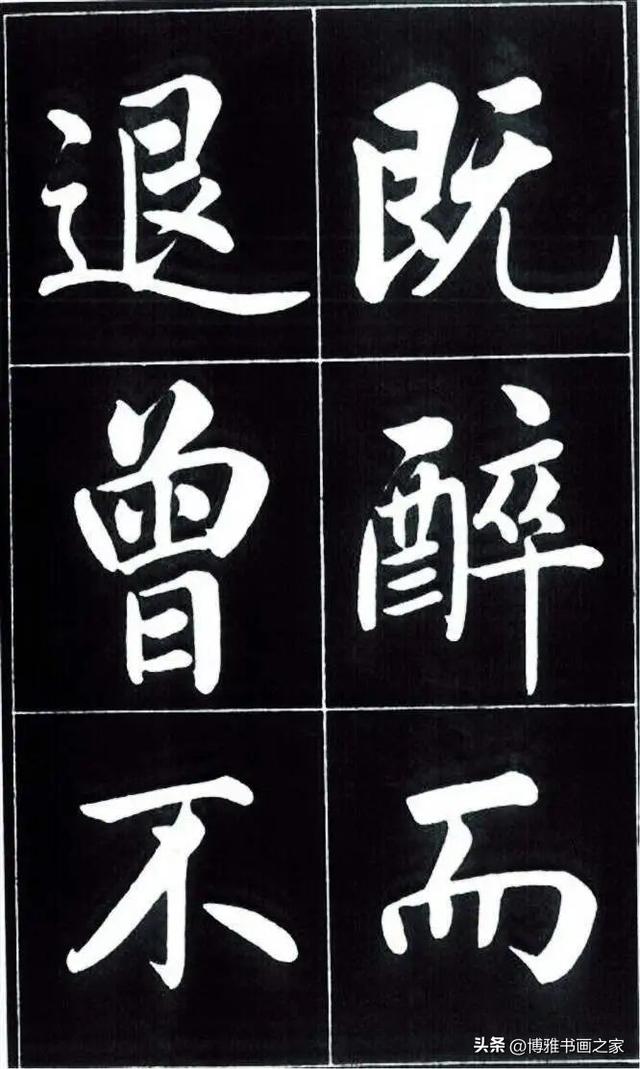 既醉而
退曾不
头条 @博雅书画之家